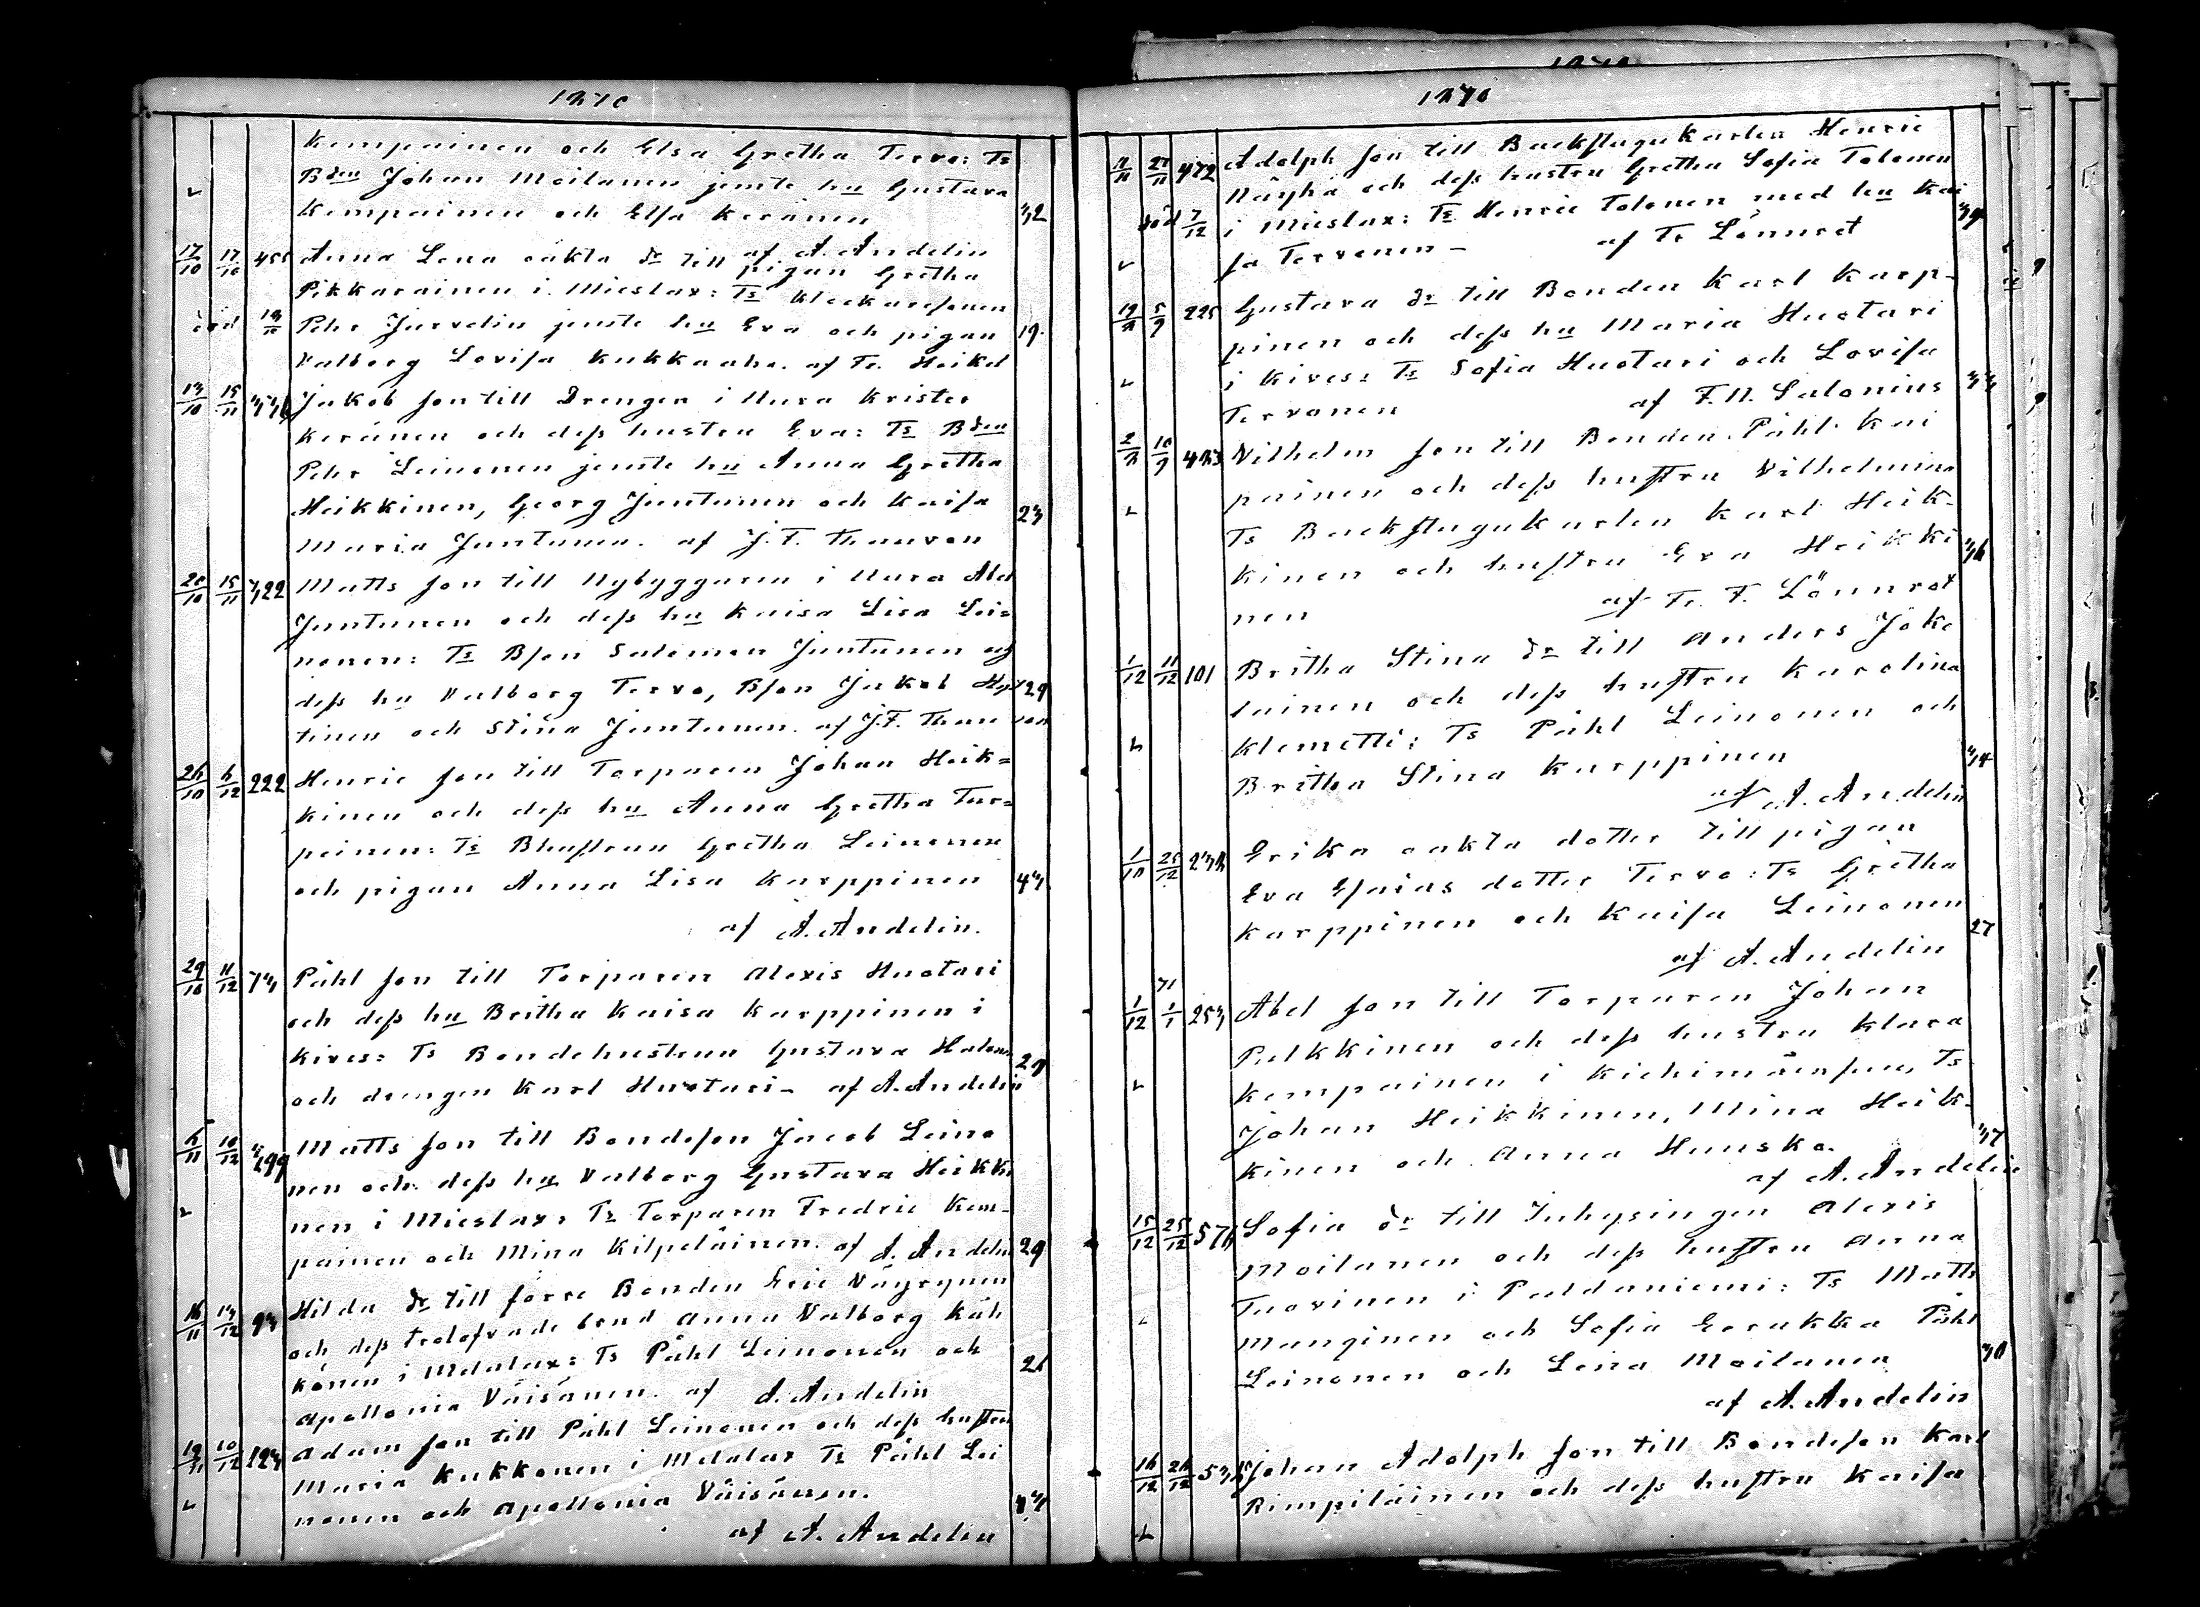 1870
Kempainen och Elsa Gretha Tervo: Ts
Bden Johan Moilanen jemte hu Gustava
Kempainen och Elsa Keränen 32
af A. Andelin
17/10 17/10 455 Anna Lena oäkta dr till pigan Gretha
Pikkarainen i Mieslax: Ts Klockaresonen
Pehr Jurvelin jemte hu Eva och pigan 19.
Valborg Lovisa Kukkaaho. af Fr. Heikel
13/10 15/11 Jakob son till Drengen i Uura Krister
Keränen och dess hustru Eva: Ts Bden
Pehr Leinonen jemte hu Anna Gretha
Heikkinen, Georg Juntunen och Kaisa 23
Maria Juntunen. af J. F. Thauvon
20/10 15/11 322 Matts son till Nybyggaren i Uura Abel
Juntunen och dess hu Kaisa Lisa Lei=
nonen: Ts Bson Salomon Juntunen och
dess hu Valborg Tervo, Bson Jakob Hyt 29
tinen och Stina Juntunen. af J. F. Thauvon
26/10 6/12 222 Henric son till Torparen Johan Heik=
kinen och dess hu Anna Gretha Tur=
peinen: Ts Bhustrun Gretha Leinonen
och pigan Anna Lisa Karppinen 43
af A. Andelin.
29/10 11/12 73 Påhl son till Torparen Alexis Huotari
och dess hu Britha Kaisa Karppinen i
Kives: Ts Bondehustrun Gustava
och drengen Karl Huotari – af A. Andelin
6/11 10/12 299 Matts son till Bondeson Jacob Leino
nen och dess hu Valborg Gustava Heikki
nen i Mieslax: Ts Torparen Fredric Kem-
painen och Mina Kilpeläinen. af A. Andelin 29
16/11 13/12 93 Hilda dr till förre Bonden Eric Väyrynen
och dess trolofvade brud Anna Valborg Käh
könen i Melalax: Ts Påhl Leinonen och 26
Apollonia Väisänen. af A. Andelin
19/11 10/12 123 Adam son till Påhl Leinonen och dess hustru
Maria Kukkonen i Melalax Ts Påhl Lei
nonen och Apollonia Väisänen.
af A. Andelin
1870
472 Adolph son till Backstugukarlen Henric
Näyhä och dess hustru Gretha Sofia Tolonen
död 7/12 i Mieslax: Ts Henric Tolonen med hu Kai
sa Tervonen – af Fr Lönnrot
225 Gustava dr till Bonden Karl Karp-
pinen och dess hu Maria Huotari
i Kives: Ts Sofia Huotari och Lovisa 33
Tervonen af F. N. Salonius
Vilhelm son till Bonden Påhl Kai
painen och dess hustru Vilhelmina
Ts Backstugukarlen Karl Heik-
kinen och hustru Eva Heikki 36
nen af Fr. F. Lönnrot
1/12 11/12 101 Britha Stina dr till Anders Joke
lainen och dess hustru Karolina
Klemetti: Ts Påhl Leinonen och
Britha Stina Karppinen 34
af A. Andelin
25/12 Erika oäkta dotter till pigan
Eva Esaias dotter Tervo: Ts Gretha
Karppinen och Kaisa Leinonen 27
af A. Andelin
71
1/12 1/1 253 Abel son till Torparen Johan
Pulkkinen och dess hustru Klara
Kempainen i Ts
Johan Heikkinen, Mina Heik-
kinen och Anna Hunska. 37
af A. Andelin
15/12 25/12 576 Sofia dr till Inhysingen Alexis
Moilanen och dess hustru Anna
Tuovinen i Paldaniemi: Ts Matts
Manginen och Sofia Påhl
Leinonen och Lena Moilanen 30
af A. Andelin
16/12 26/12 Johan Adolph son till Bondeson Karl
Rimpiläinen och dess hustru Kaisa